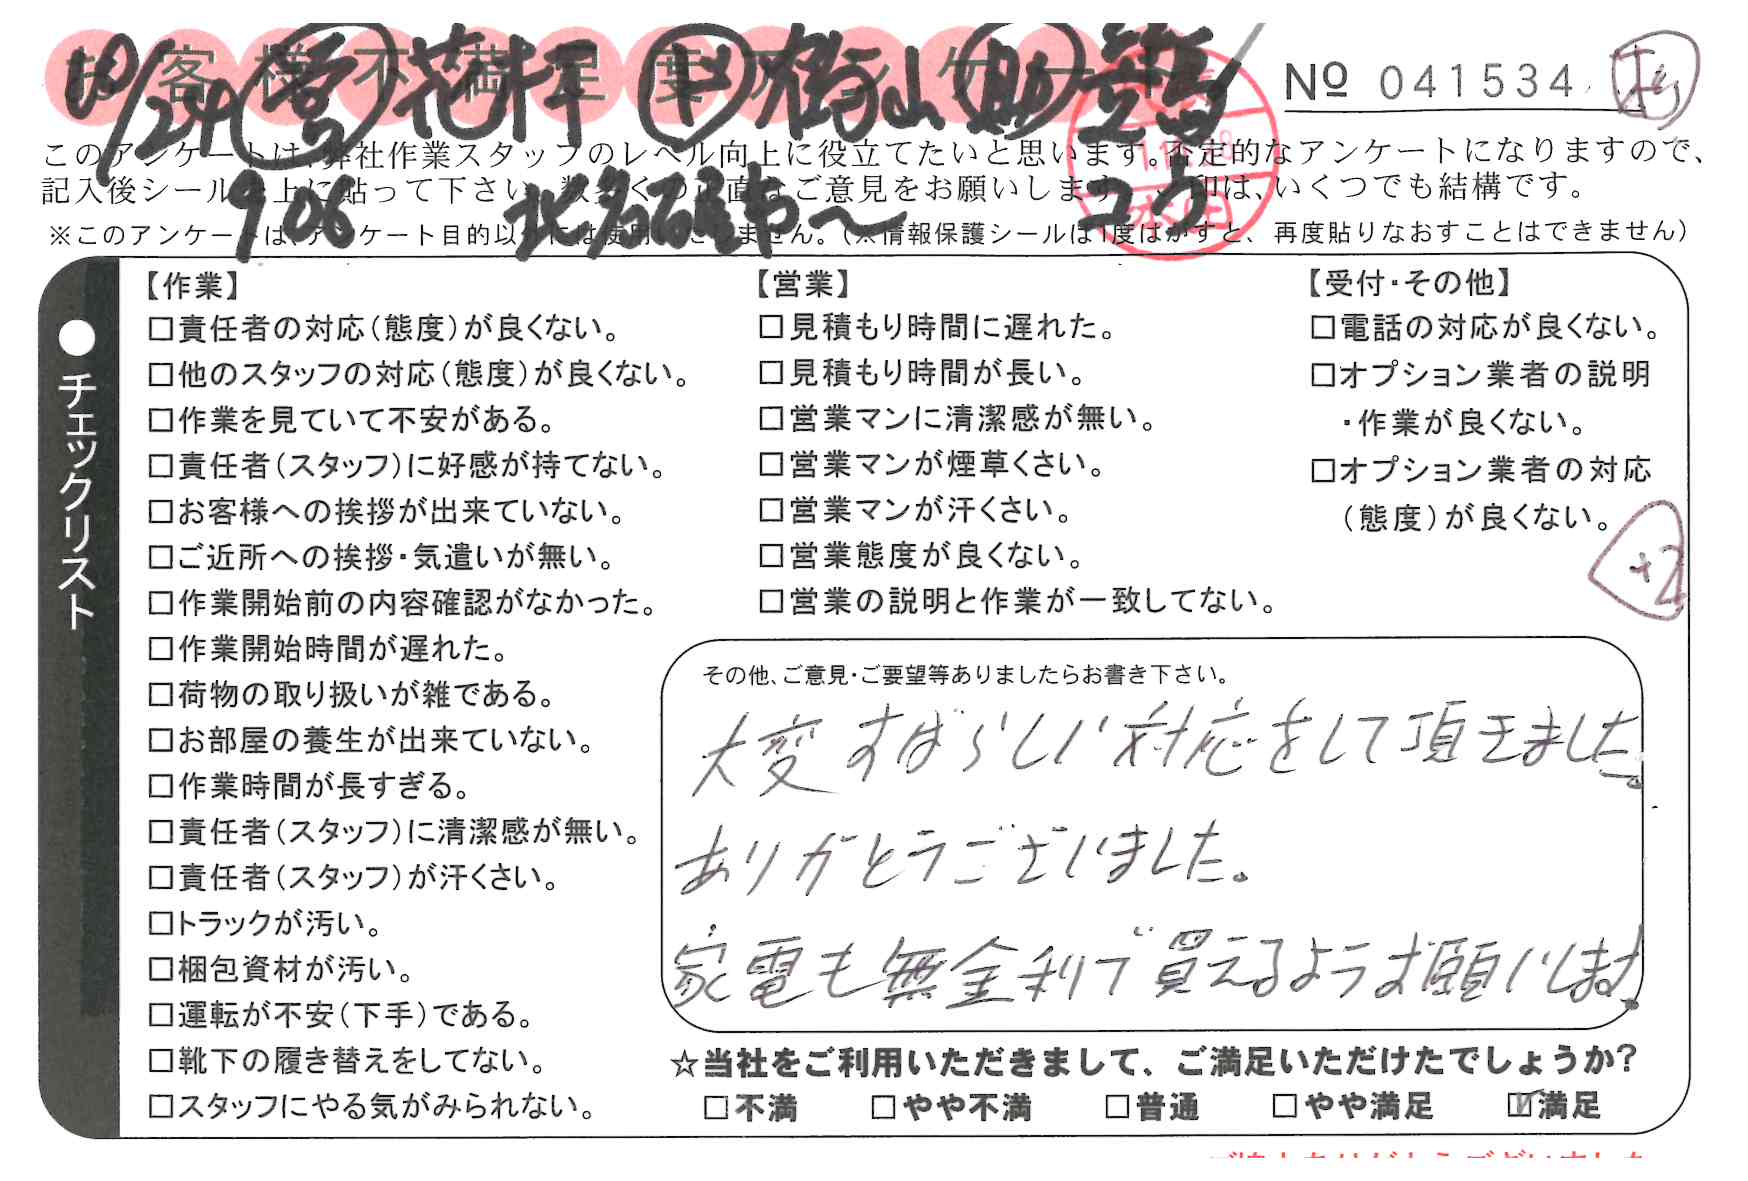 お客様不満足度アンケート
10/24 営 花井 ド 横山 助
№ 041534
このアンケートは、弊社作業スタッフのレベル向上に役立てたいと思います。否定的なアンケートになりますので、
記入後シールを上に貼って下さい。数多くの正直なご意見をお願いします。✓印は、いくつでも結構です。
906 北名古屋市〜
※このアンケートは、アンケート目的以外には使用いたしません。(※情報保護シールは1度はがすと、再度貼りなおすことはできません)
●チェックリスト
【作業】
□責任者の対応(態度)が良くない。
□他のスタッフの対応(態度)が良くない。
□作業を見ていて不安がある。
□責任者(スタッフ)に好感が持てない。
□お客様への挨拶が出来ていない。
□ご近所への挨拶・気遣いが無い。
□作業開始前の内容確認がなかった。
□作業開始時間が遅れた。
□荷物の取り扱いが雑である。
□お部屋の養生が出来ていない。
□作業時間が長すぎる。
□責任者(スタッフ)に清潔感が無い。
□責任者(スタッフ)が汗くさい。
□トラックが汚い。
□梱包資材が汚い。
□運転が不安(下手)である。
□靴下の履き替えをしてない。
□スタッフにやる気がみられない。
【営業】
□見積もり時間に遅れた。
□見積もり時間が長い。
□営業マンに清潔感が無い。
□営業マンが煙草くさい。
□営業マンが汗くさい。
□営業態度が良くない。
□営業の説明と作業が一致してない。
【受付・その他】
□電話の対応が良くない。
□オプション業者の説明
・作業が良くない。
□オプション業者の対応
(態度)が良くない。
+2
その他、ご意見・ご要望等ありましたらお書き下さい。
大変すばらしい対応をして頂きました。
ありがとうございました。
家電も無金利で買えるようお願いします。
☆当社をご利用いただきまして、ご満足いただけたでしょうか?
□不満 □やや不満 □普通 □やや満足 ☑満足